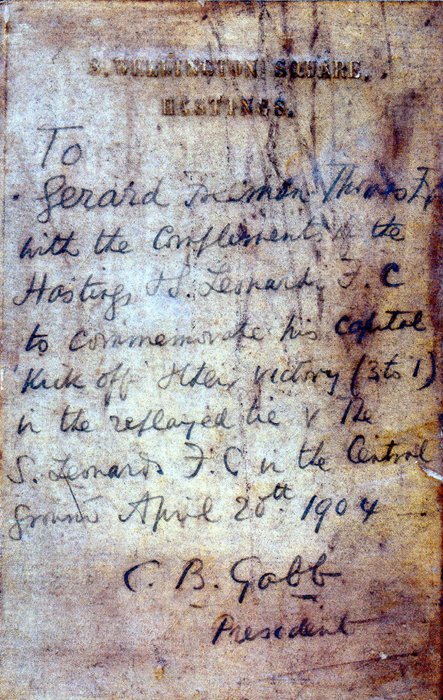 WELLINGTON SQUARE,
HASTINGS.
To
Gerard Freeman Thomas
with the Complements of the
Hastings & St. Leonards F. C
to commemorate his capital
Kick off & their victory (3 to 1)
in the replayed tie v The
S. Leonards F. C in the Central
ground April 20th 1904
C. B. Gabb
President